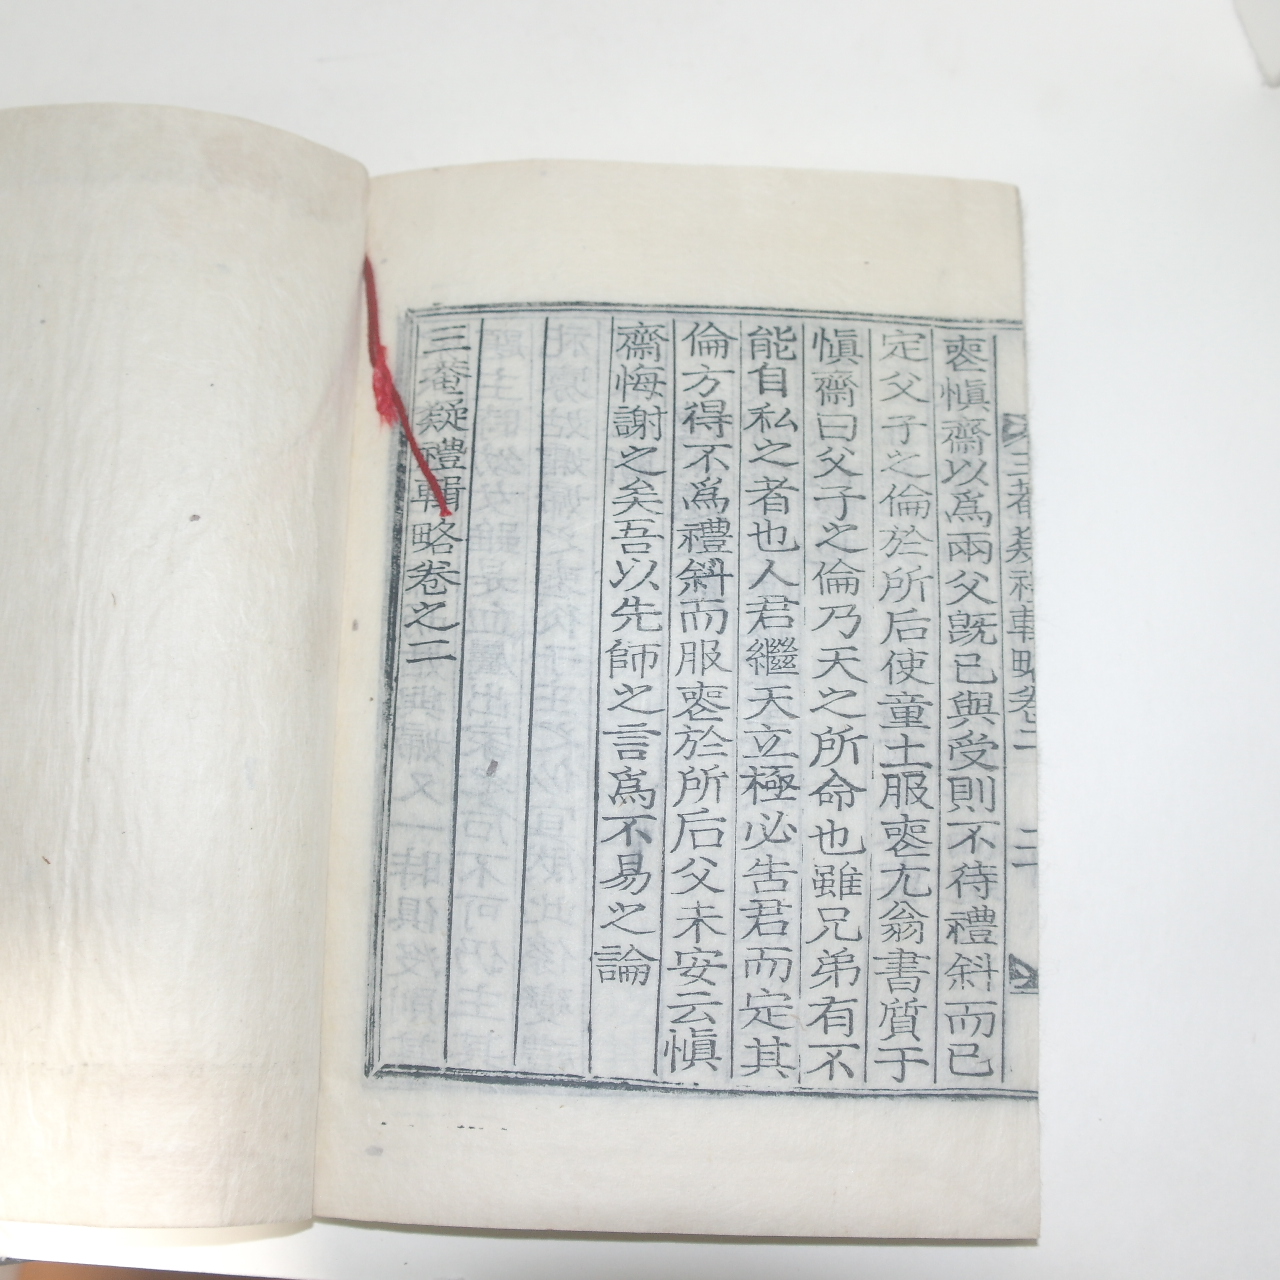 三菴疑禮輯略卷二 二
喪愼齋以爲兩父旣已與受則不待禮斜而已
定父子之倫於所后使童土服喪尤翁書質于
愼齋曰父子之倫乃天之所命也雖兄弟有不
能自私之者也人君繼天立極必告君而定其
倫方得不爲禮斜而服喪於所后父未安云愼
齋悔謝之矣吾以先師之言爲不易之論
三菴疑禮輯略卷之二